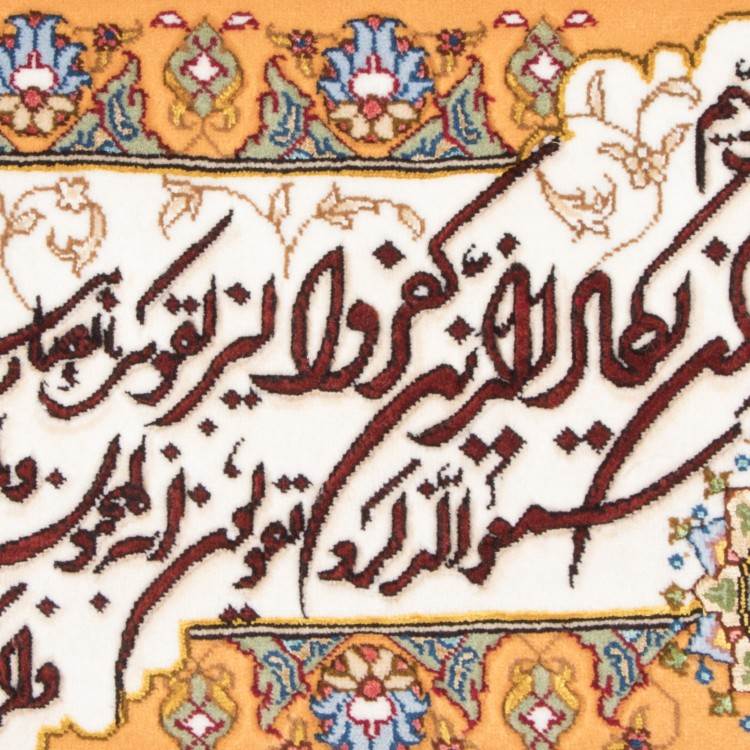 يكاد الذين كفروا ليزلقونك بأبصار
سمعوا الذكر و يقولون انه لمجنون و